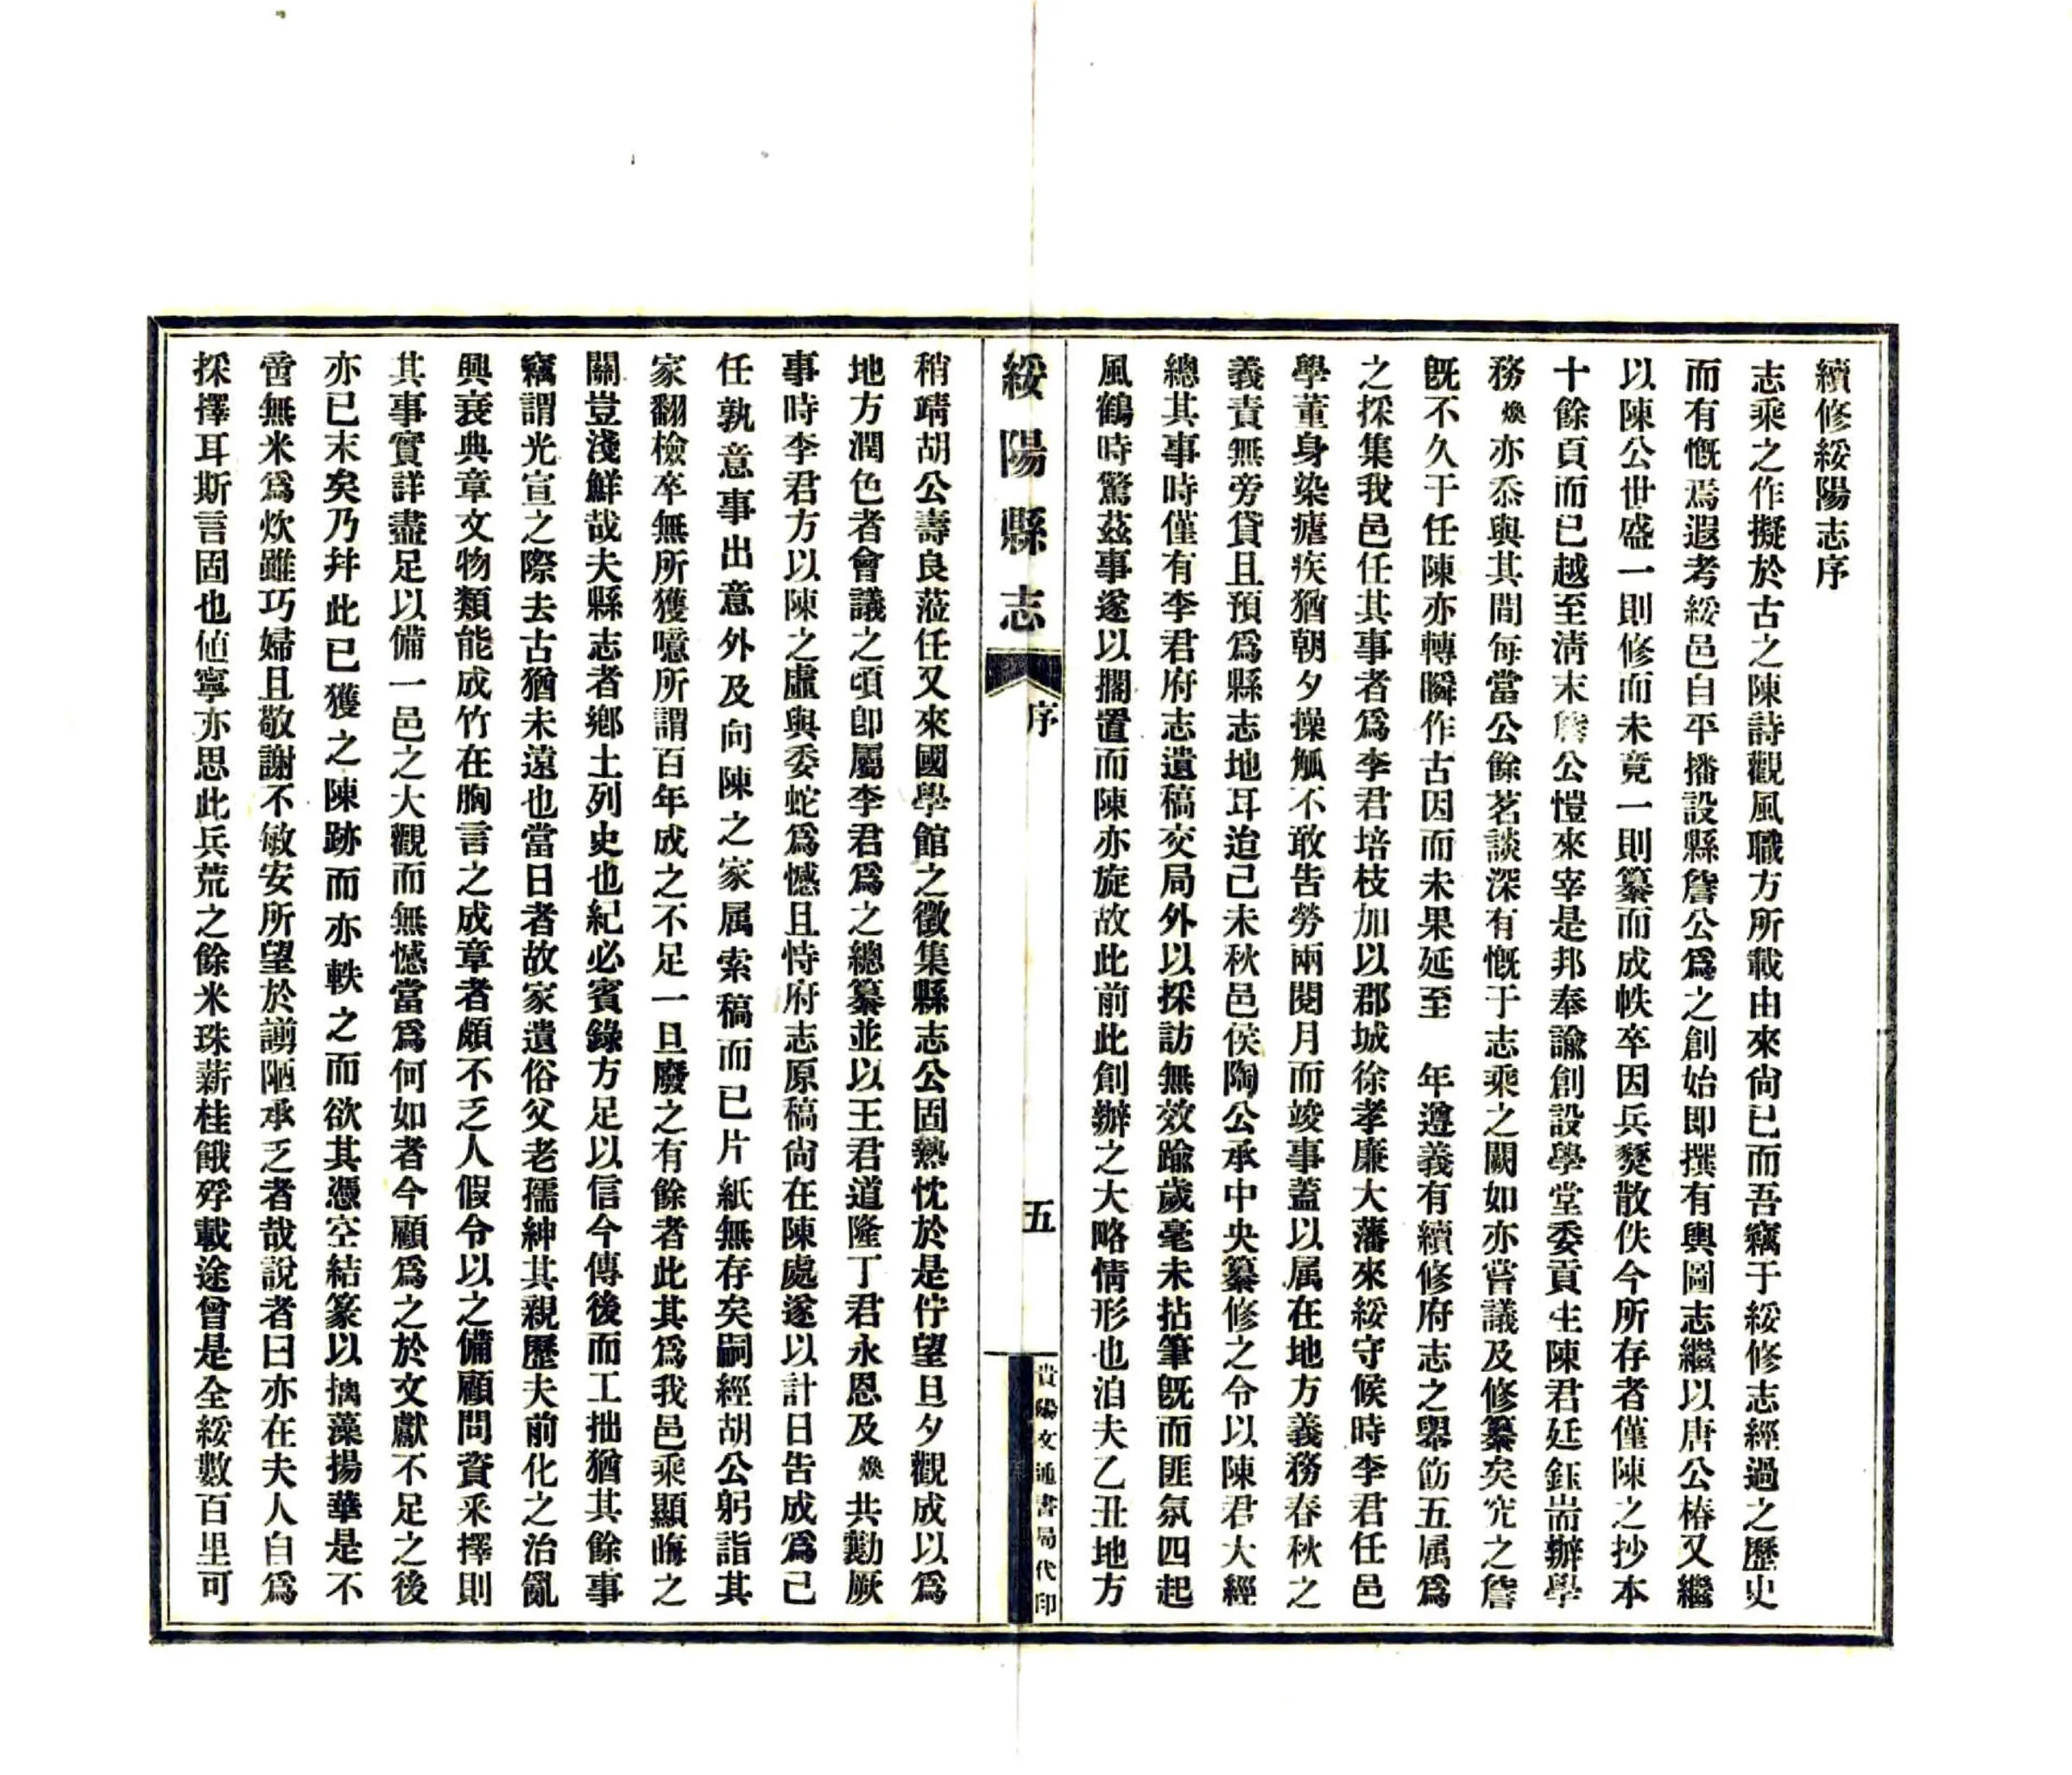 續修綏陽志序
志乘之作擬於古之陳詩觀風職方所載由來尙已而吾竊于綏修志經過之歷史
而有慨焉遐考綏邑自平播設縣詹公爲之創始即撰有輿圖志繼以唐公椿又繼
以陳公世盛一則修而未竟一則纂而成帙卒因兵燹散佚今所存者僅陳之抄本
十餘頁而已越至淸末詹公愷來宰是邦奉諭創設學堂委貢生陳君廷鈺耑辦學
務煥亦忝與其間每當公餘茗談深有慨于志乘之闕如亦嘗議及修纂矣究之詹
旣不久于任陳亦轉瞬作古因而未果延至　年遵義有續修府志之舉飭五属爲
之採集我邑任其事者爲李君培枝加以郡城徐孝廉大藩來綏守候時李君任邑
學董身染瘧疾猶朝夕操觚不敢告勞兩閱月而竣事蓋以属在地方義務春秋之
義責無旁貸且預爲縣志地耳迨己未秋邑侯陶公承中央纂修之令以陳君大經
總其事時僅有李君府志遺稿交局外以採訪無效踰歲毫未拈筆旣而匪氛四起
風鶴時驚茲事遂以擱置而陳亦旋故此前此創辦之大略情形也洎夫乙丑地方
綏陽縣志
序
五
貴陽文通書局代印
稍靖胡公壽良蒞任又來國學館之徵集縣志公固熱忱於是佇望旦夕觀成以爲
地方潤色者會議之頃卽屬李君爲之總纂並以王君道隆丁君永恩及煥共勷厥
事時李君方以陳之虛與委蛇爲憾且恃府志原稿尙在陳處遂以計日吿成爲已
任孰意事出意外及向陳之家属索稿而已片紙無存矣嗣經胡公躬詣其
家翻檢卒無所獲噫所謂百年成之不足一旦廢之有餘者此其爲我邑乘顯晦之
關豈淺鮮哉夫縣志者鄕土列史也紀必賓錄方足以信今傳後而工拙猶其餘事
竊謂光宣之際去古猶未遠也當日者故家遺俗父老孺紳其親歷夫前化之治亂
興衰典章文物類能成竹在胸言之成章者頗不乏人假令以之備顧問資采擇則
其事實詳盡足以備一邑之大觀而無憾當爲何如者今顧爲之於文獻不足之後
亦已末矣乃幷此已獲之陳跡而亦軼之而欲其憑空結篆以摛藻揚華是不
啻無米爲炊雖巧婦且敬謝不敏安所望於謭陋承乏者哉說者曰亦在夫人自爲
採擇耳斯言固也値寧亦思此兵荒之餘米珠薪桂餓殍載途曾是全綏數百里可